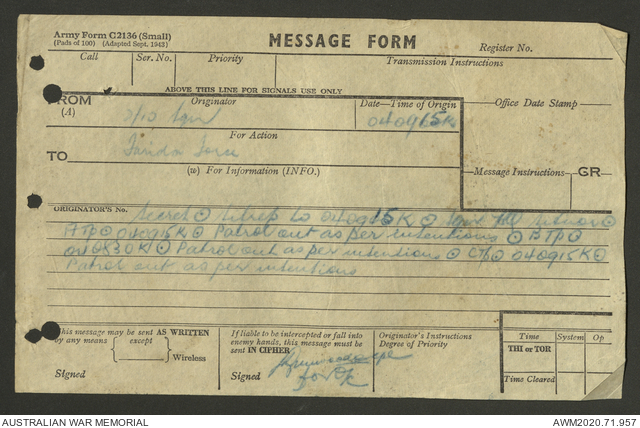 Army Form C2136 (Small)
(Pads of 100) (Adapted Sept. 1943)
MESSAGE FORM
Register No.
Call Ser. No. Priority Transmission Instructions
ABOVE THIS LINE FOR SIGNALS USE ONLY
FROM
(A)
Originator
Date—Time of Origin
Office Date Stamp
040915K
For Action
TO
(w) For Information (INFO.)
Message Instructions GR
ORIGINATOR'S No.
Secret ⊙ Sitrep to 040915K ⊙
ATP ⊙ 040915K ⊙ Patrol out as per intentions ⊙ BTP ⊙
040830K ⊙ Patrol out as per intentions ⊙ CTP ⊙ 040915K ⊙
Patrol out as per intentions
This message may be sent AS WRITTEN
by any means except
Wireless
Signed
If liable to be intercepted or fall into
enemy hands, this message must be
sent IN CIPHER
Signed
Originator's Instructions
Degree of Priority
Time System Op
THI or TOR
Time Cleared
AUSTRALIAN WAR MEMORIAL
AWM2020.71.957